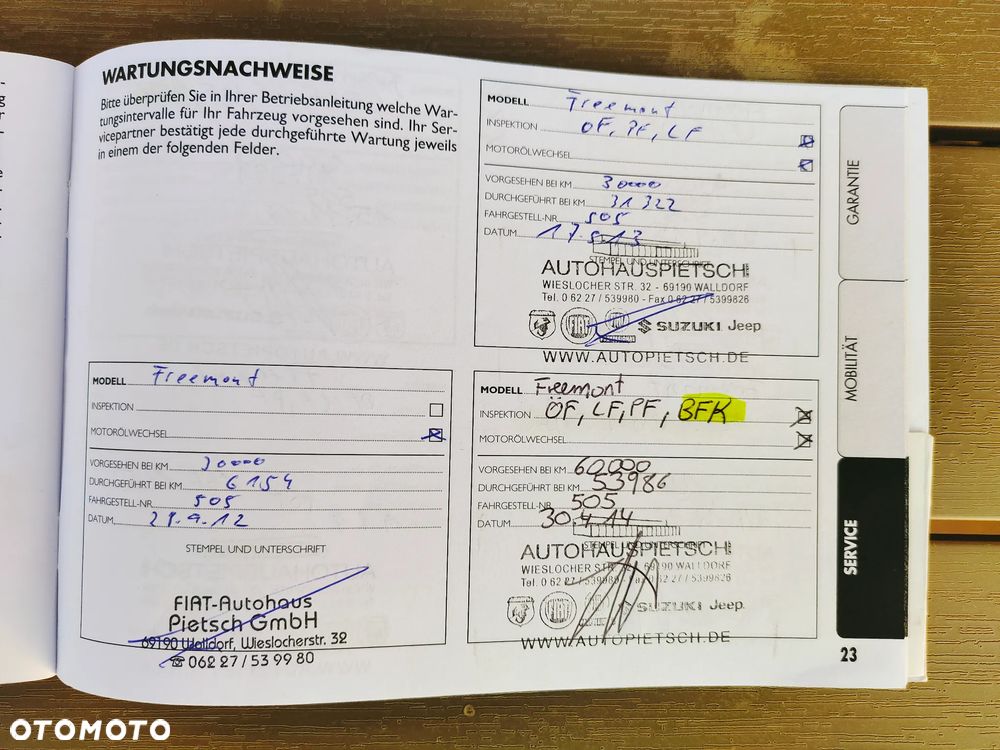 WARTUNGSNACHWEISE
Bitte überprüfen Sie in Ihrer Betriebsanleitung welche War-
tungsintervalle für Ihr Fahrzeug vorgesehen sind. Ihr Ser-
vicepartner bestätigt jede durchgeführte Wartung jeweils
in einem der folgenden Felder.
MODELL Freemont
INSPEKTION
MOTORÖLWECHSEL
VORGESEHEN BEI KM 30000
DURCHGEFÜHRT BEI KM 6154
FAHRGESTELL-NR. 505
DATUM 9.12
STEMPEL UND UNTERSCHRIFT
FIAT-Autohaus
Pietsch GmbH
69190 Walldorf, Wieslocherstr. 32
☎ 062 27 / 53 99 80
MODELL Freemont
INSPEKTION ÖF, PF, LF
MOTORÖLWECHSEL
VORGESEHEN BEI KM 30000
DURCHGEFÜHRT BEI KM 31322
FAHRGESTELL-NR. 505
DATUM 17.5.13
STEMPEL UND UNTERSCHRIFT
AUTOHAUSPIETSCH
WIESLOCHER STR. 32 - 69190 WALLDORF
Tel. 0 62 27 / 539980 - Fax 0 62 27 / 5399826
FIAT
SUZUKI Jeep
WWW.AUTOPIETSCH.DE
MODELL Freemont
INSPEKTION ÖF, LF, PF, BFK
MOTORÖLWECHSEL
VORGESEHEN BEI KM 60.000
DURCHGEFÜHRT BEI KM 53986
FAHRGESTELL-NR. 505
DATUM 30.4.14
STEMPEL UND UNTERSCHRIFT
AUTOHAUSPIETSCH
WIESLOCHER STR. 32 - 69190 WALLDORF
Tel. 0 62 27 / 539980 - Fax 0 62 27 / 5399826
FIAT
SUZUKI Jeep
WWW.AUTOPIETSCH.DE
GARANTIE
MOBILITÄT
SERVICE
23
OTOMOTO